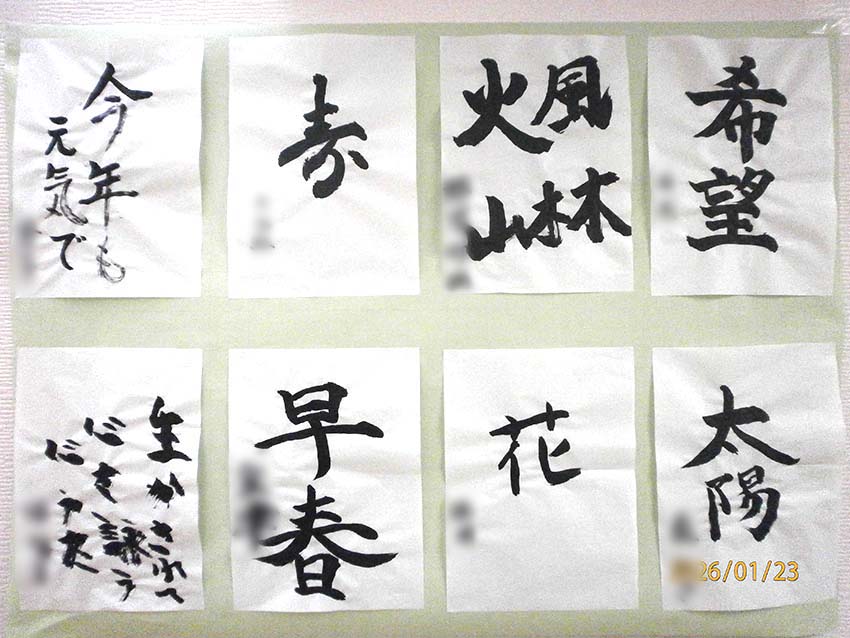 希望
風林
火山
寿
今年も
元気で
太陽
花
早春
生かされて
心を詠う
26/01/23